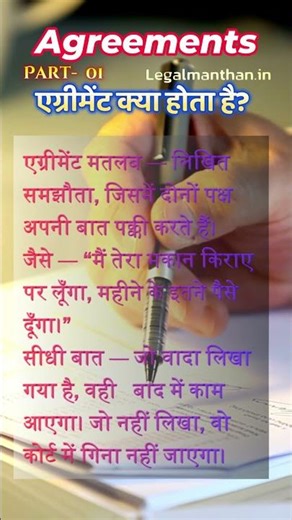 Agreements
PART- 01 Legalmanthan.in
एग्रीमेंट क्या होता है?
एग्रीमेंट मतलब — लिखित
समझौता, जिसमें दोनों पक्ष
अपनी बात पक्की करते हैं।
जैसे — “मैं तेरा मकान किराए
पर लूँगा, महीने के इतने पैसे
दूँगा।”
सीधी बात — जो वादा लिखा
गया है, वही बाद में काम
आएगा। जो नहीं लिखा, वो
कोर्ट में गिना नहीं जाएगा।